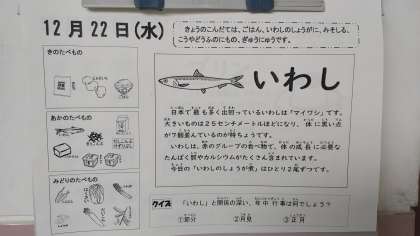 12月22日(水)
きょうのこんだては、ごはん、いわしのしょうがに、みそしる、
こうやどうふのにもの、ぎゅうにゅうです。
きのたべもの
あかのたべもの
みどりのたべもの
いわし
日本で最も多く出回っているいわしは「マイワシ」です。
大きいものは25センチメートルほどになり、体に黒い点
が7個並んでいるのが特ちょうです。
いわしは、赤のグループの食べ物で、体の成長に必要な
たんぱく質やカルシウムがたくさん含まれています。
今日の「いわしのしょうが煮」はひとり2尾ずつです。
クイズ 「いわし」と関係の深い、年中行事は何でしょう?
①節分 ②月見 ③正月